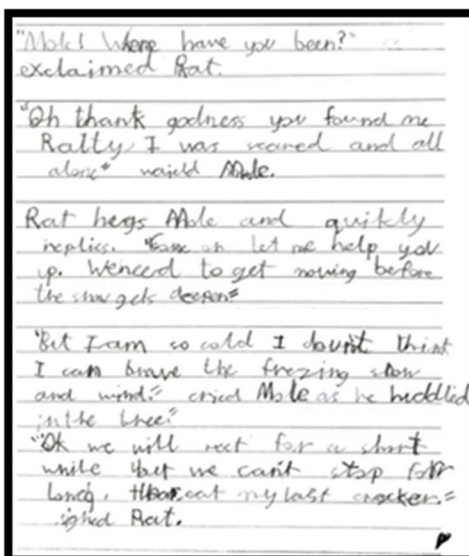 "Mole! Where have you been?"
exclaimed Rat.
"Oh thank godness you found me
Ratty, I was scared and all
alone" Mole.
Rat hegs Mole and quitkly
replies. "Come on let me help you
up. We need to get moving before
the snow gets deeper"
"But I am so cold I dount think
I can brave the frezing snow
and wind." cried Mole as he huddled
in the tree."
"Ok we will rest for a short
while but we can't stop for
long. eat my last cracker."
sighed Rat.